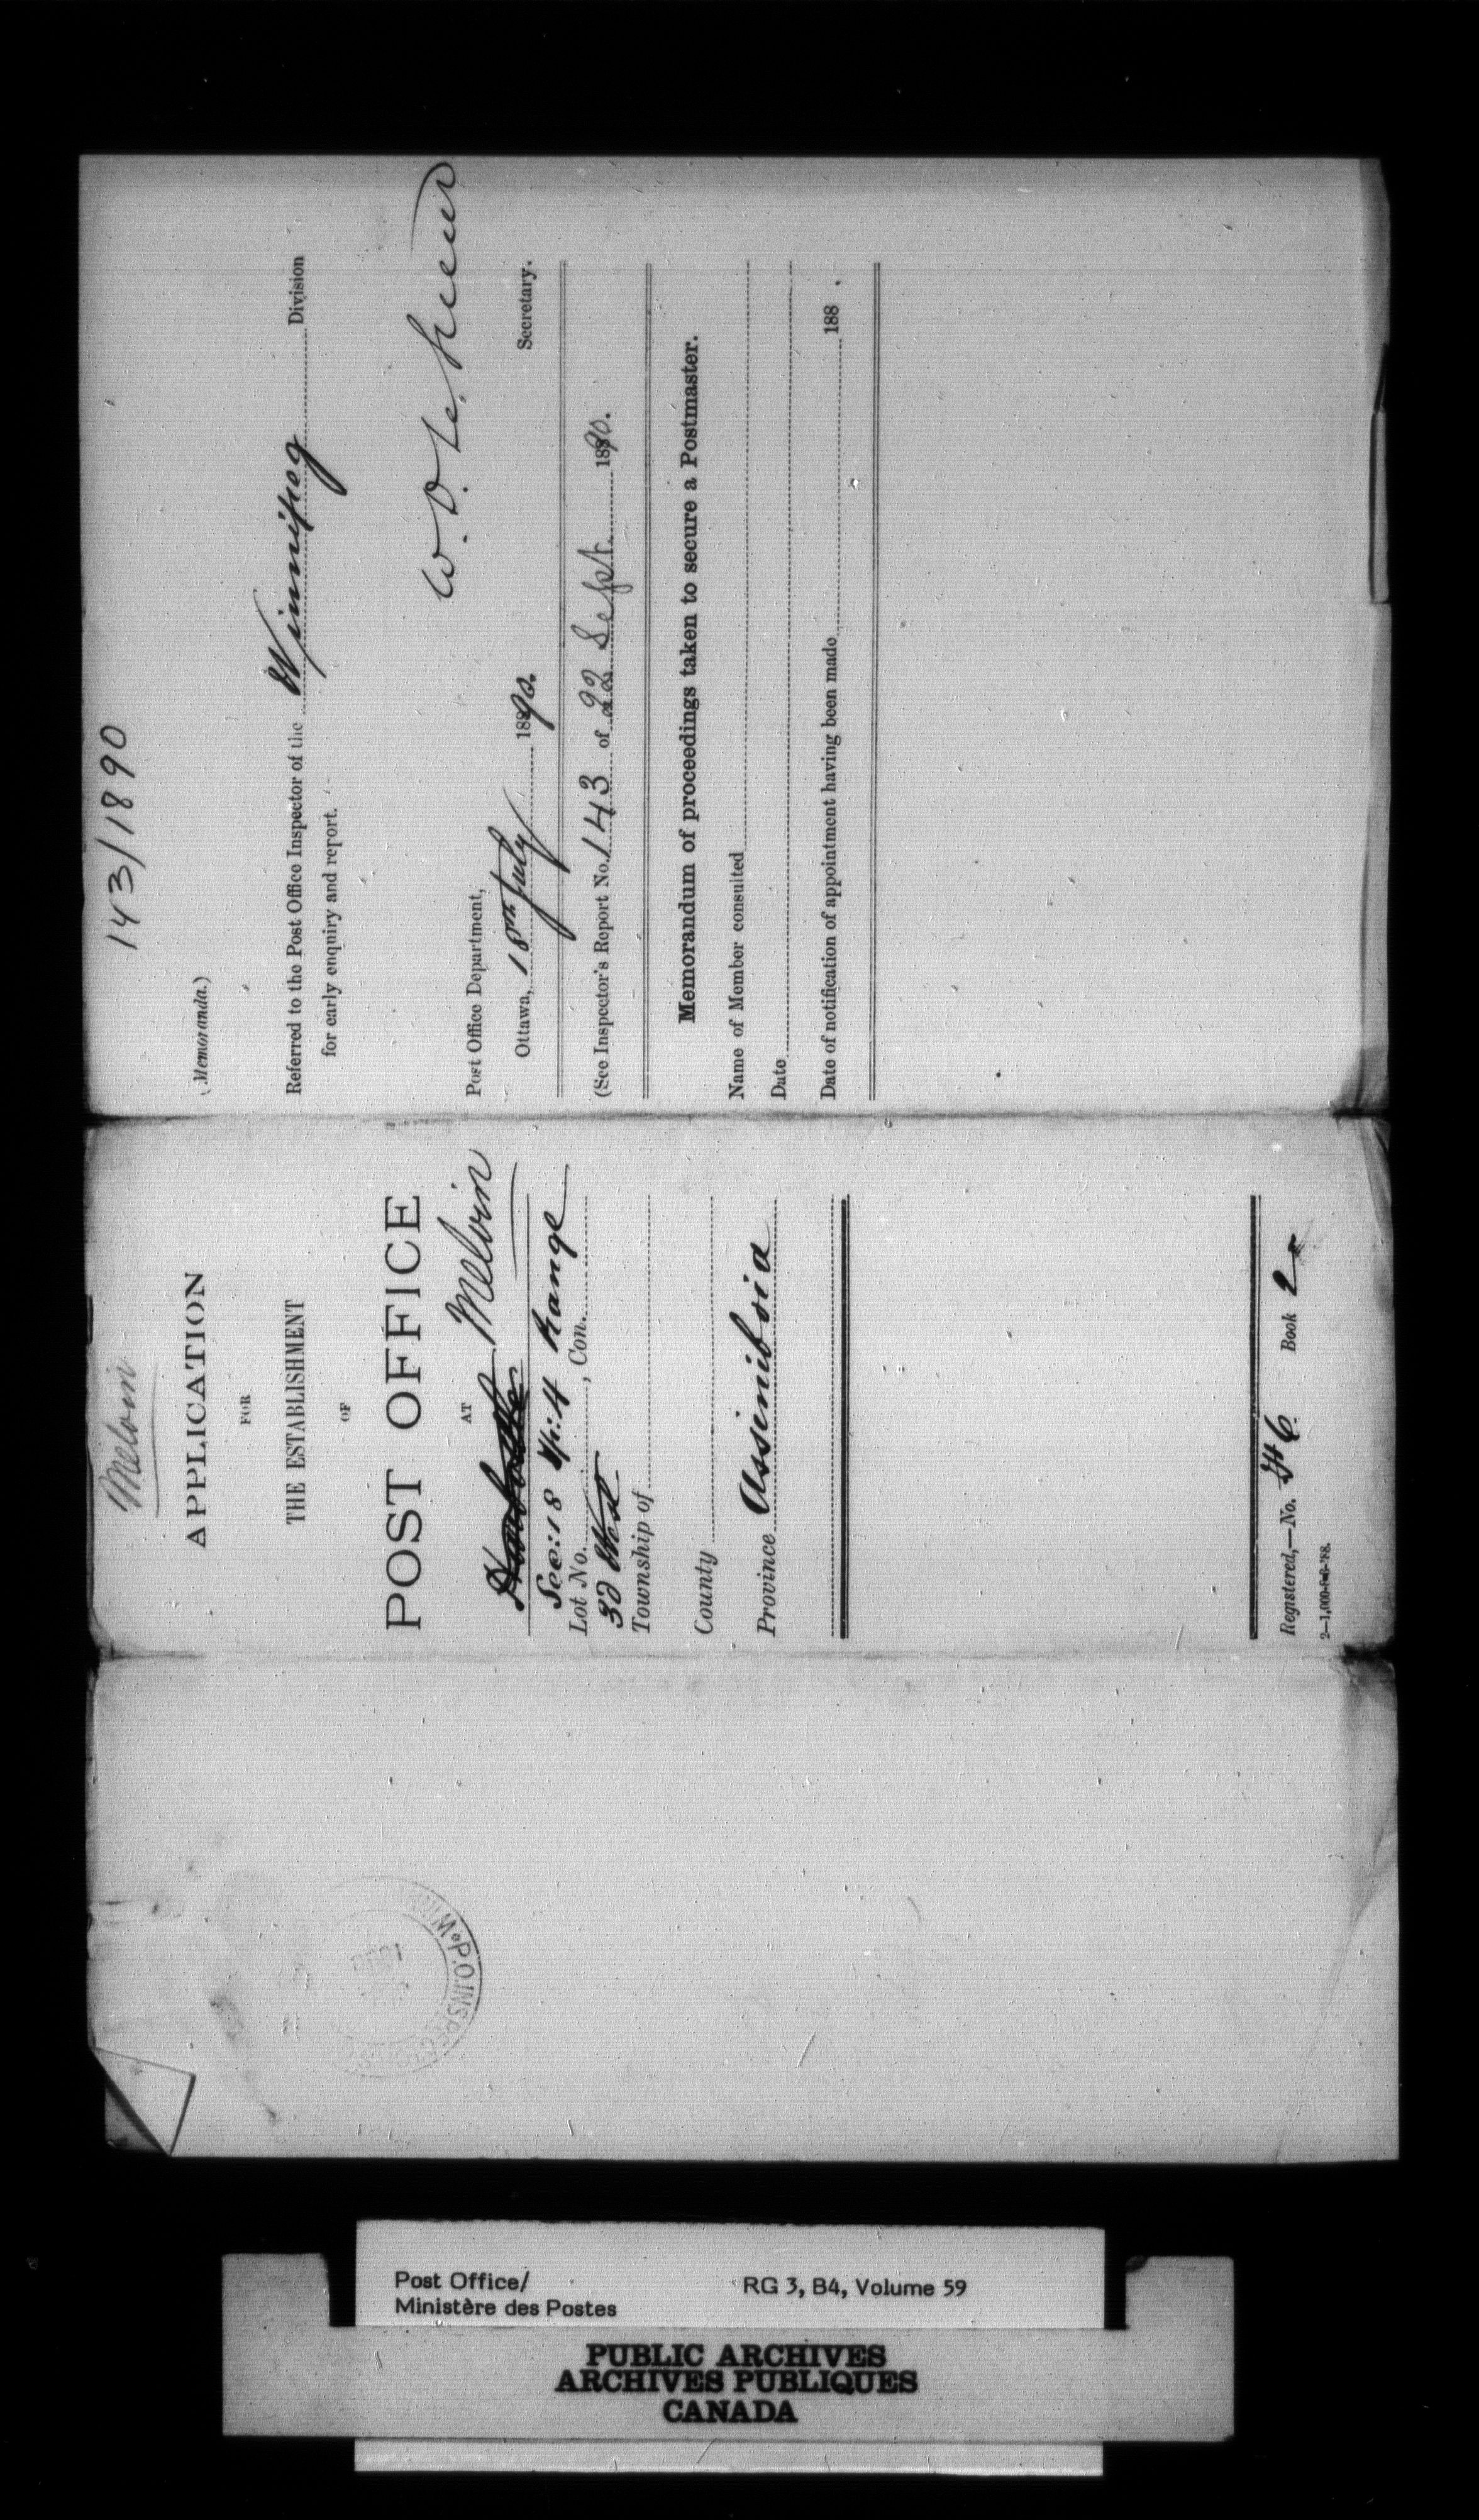 143/1890
(Memoranda.)
Referred to the Post Office Inspector of the Winnipeg Division
for early enquiry and report.
W. D. LeSueur
Secretary.
Post Office Department,
Ottawa, 18th July 1890.
(See Inspector's Report No. 143 of 22 Sept. 1890.
Memorandum of proceedings taken to secure a Postmaster.
Name of Member consulted
Date
Date of notification of appointment having been made 188 .
Melvin
APPLICATION
FOR
THE ESTABLISHMENT
OF
POST OFFICE
AT
Melvin
Sec: 18 Tp: 4 Range
Lot No. , Con.
32 West
Township of
County
Province Assiniboia
Registered,—No. Book 2
2—1,000-8-6-'88.
P.O. INSPECTOR
Post Office/
Ministère des Postes
RG 3, B4, Volume 59
PUBLIC ARCHIVES
ARCHIVES PUBLIQUES
CANADA